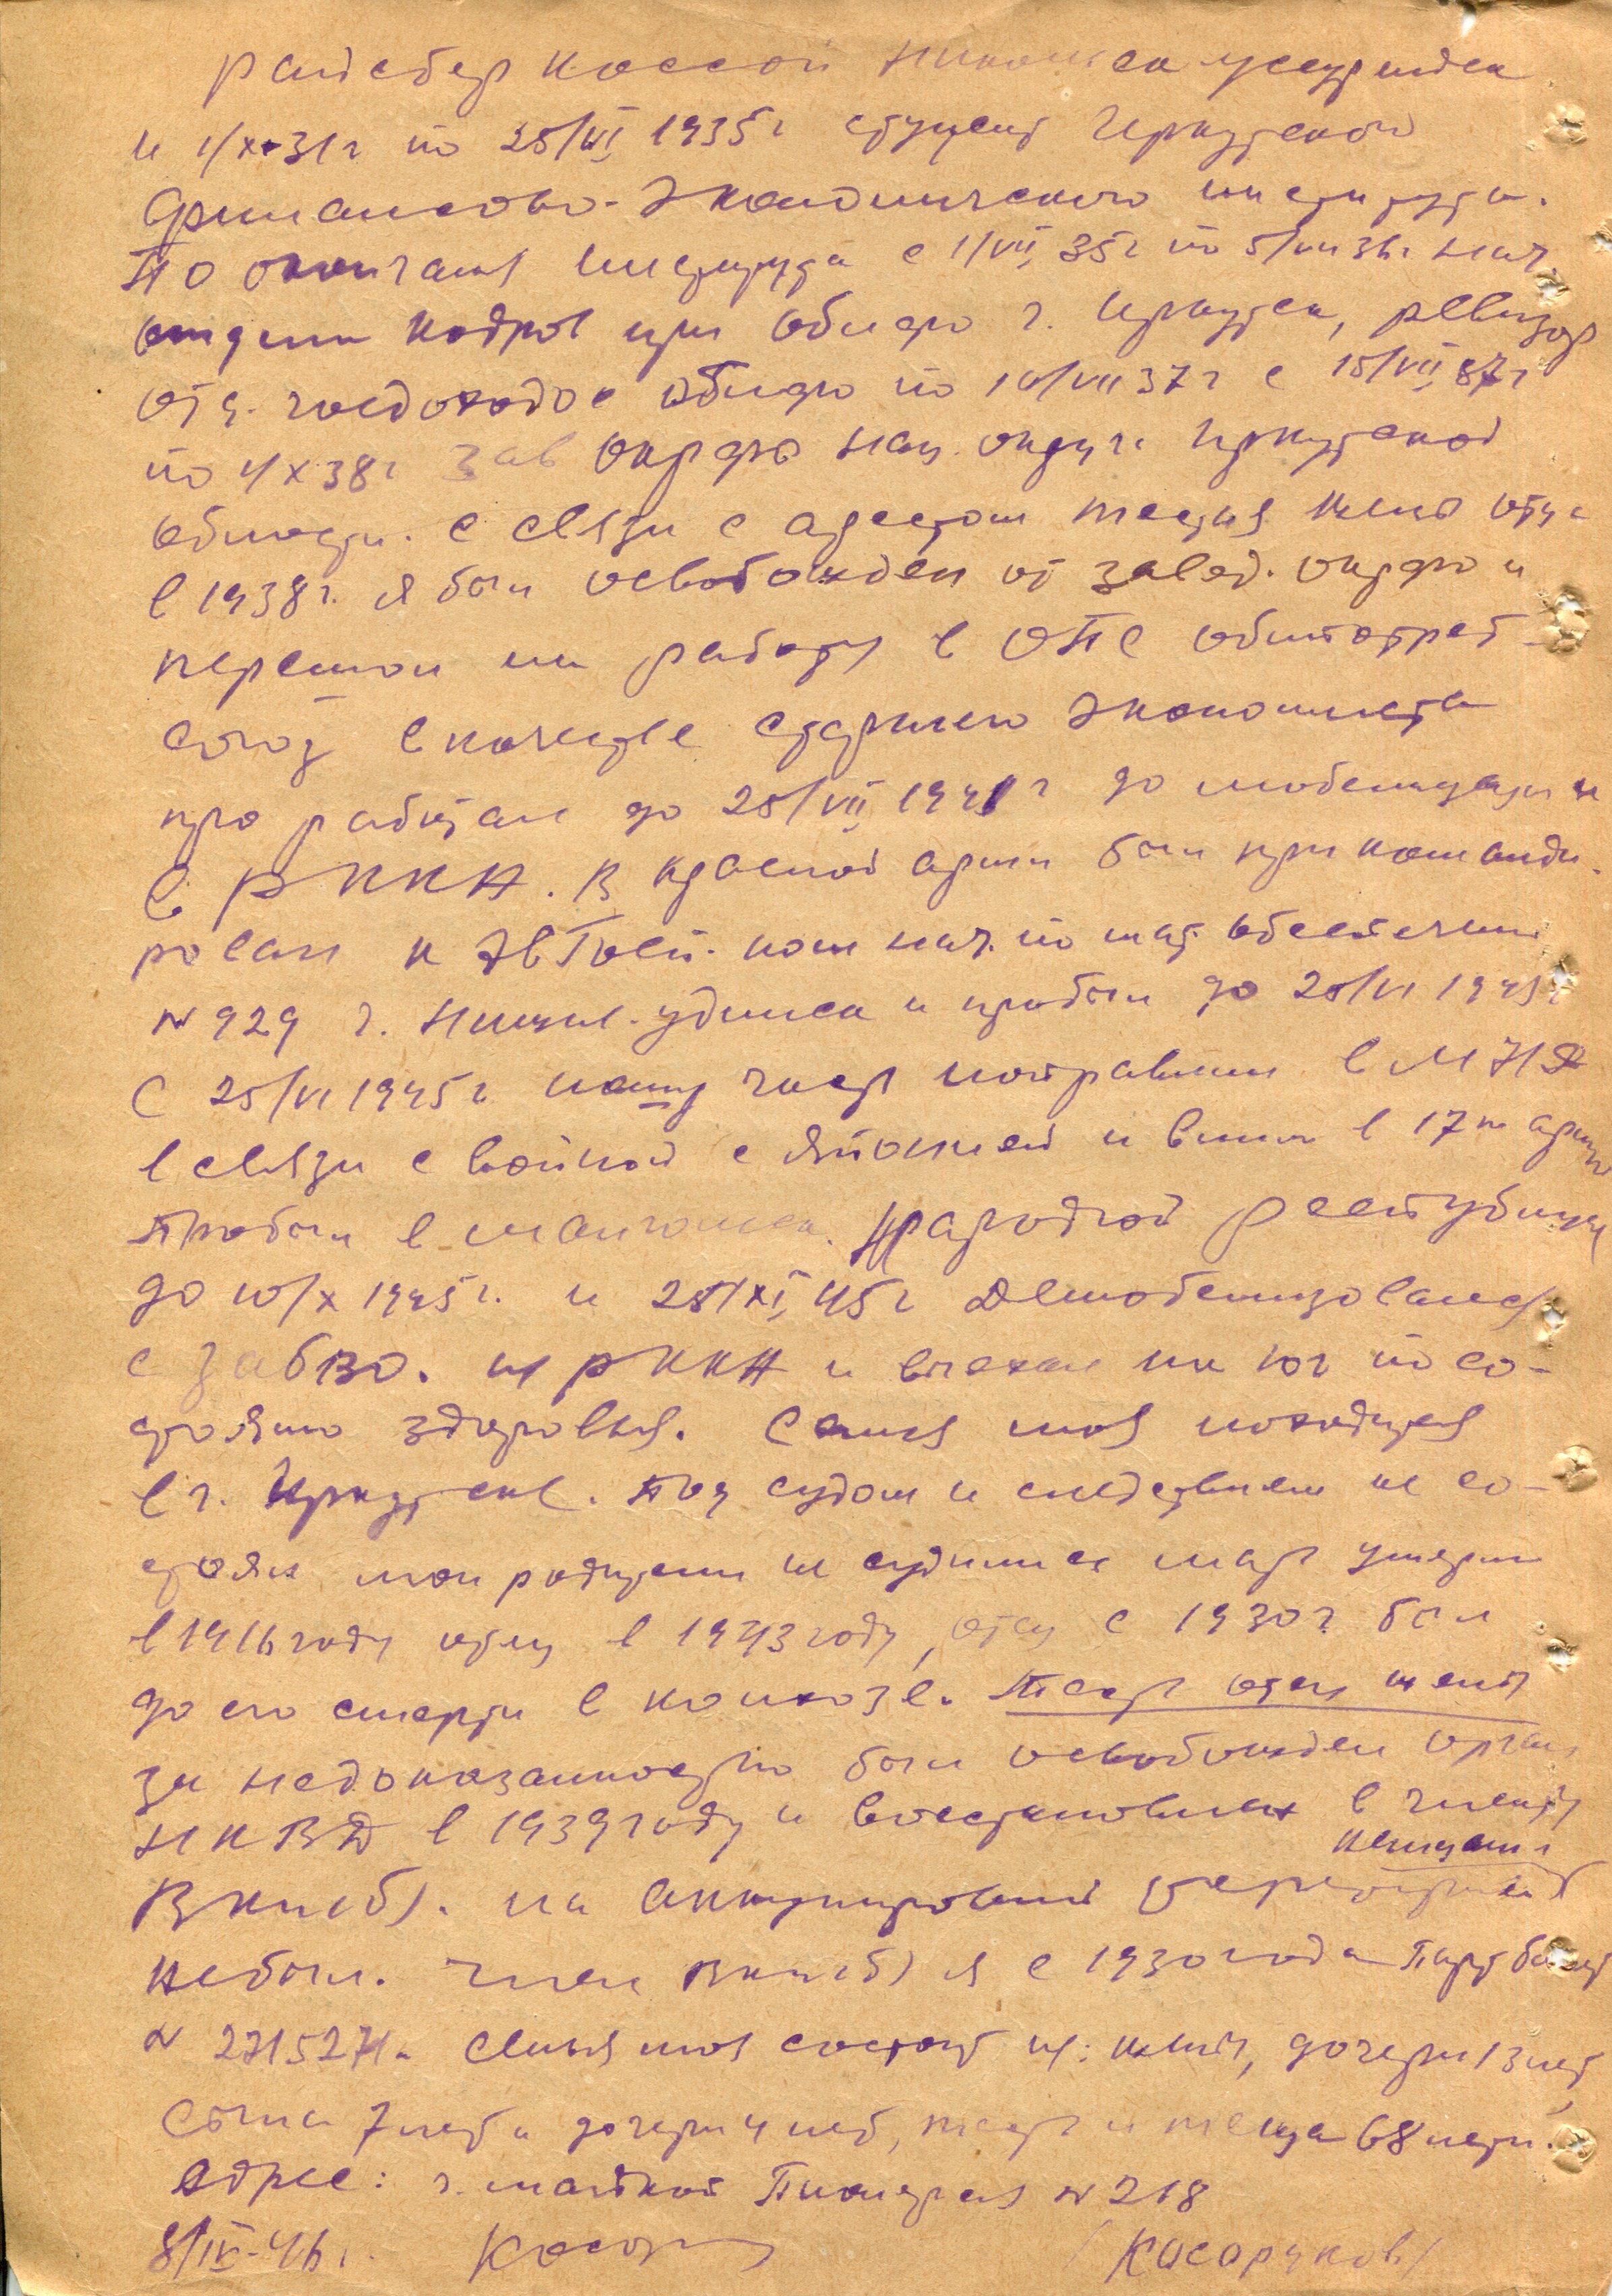 райсберкассой Никольск-Уссурийска
и 1/X-31г по 25/VI 1935г студент Иркутского
Финансово-Экономического института.
По окончании института с 1/VII 35г по 5/VII 36г нач
отдела кадров при Облфо г. Иркутска, ревизор
отд. госдоходов Облфо по 10/VII 37г с 15/VII 37г
по 1/X 38г зав Окрфо нац. округа Иркутской
области. С связи с арестом тестя жены отца
в 1938г. я был освобожден от завед. окрфо и
перешол на работу в ОПС Облпотреб-
союз в качестве старшего экономиста
про работал до 25/VII 1941г до мобелизации
в РККА. В красной армии был прикоманди-
рован к Эв Госп. пом нач. по мат. обеспечению
№ 929 г. Нижне-удинска и пробыл до 20/VI 1945г
С 25/VI 1945г нашу часть направили в МНР
в связи с войной с Японией и вошли в 17ю армию
Пробыл в Монгольск. Народной Республики
до 10/X 1945г. и 25/XI 45г Демобелизовался
с ЗабВО. из РККА и выехал на юг по со-
стоянию здоровья. Семья моя находится
в г. Иркутске. Под судом и следствием не со-
стоял мои родители не судились мать умерла
в 1916 году отец в 1943 году, отец с 1930г был
до его смерти в колхозе. Тесть отец жены
за недоказанностью был освобожден орган
НКВД в 1939 году и восстановлен в члены
ВКП(б). На оккупированной немцами территорией
небыл. Член ВКП(б) я с 1930 года Парт билет
№ 2715271. Семья моя состоит из: жены, дочери 13 лет
сына 7 лет и дочери 4 лет, тесть и теща 68 лети.
Адрес: г. Майкоп Пионерская № 218
8/IV-46г. /Косоруков/